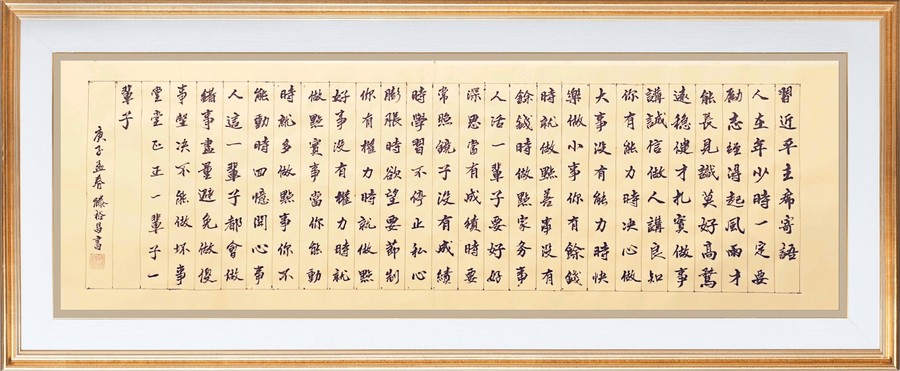 習近平主席寄語
人在年少時一定要
勵志經得起風雨才
能長見識莫好高騖
遠穩健才扎實做事
講誠信做人講良知
你有能力時决心做
大事沒有能力時快
樂做小事你有餘錢
時就做點善事沒有
餘錢時做點家务事
人活一輩子要好好
深思當有成績時要
常照鏡子沒有成績
時學習不停止私心
膨脹時欲望要節制
你有權力時就做點
好事沒有權力時就
做點實事當你能動
時就多做點事你不
能動時回憶開心事
人這一輩子都會做
錯事盡量避免做傻
事堅决不能做坏事
堂堂正正一輩子一
輩子
庚子孟春 滕裕昌書